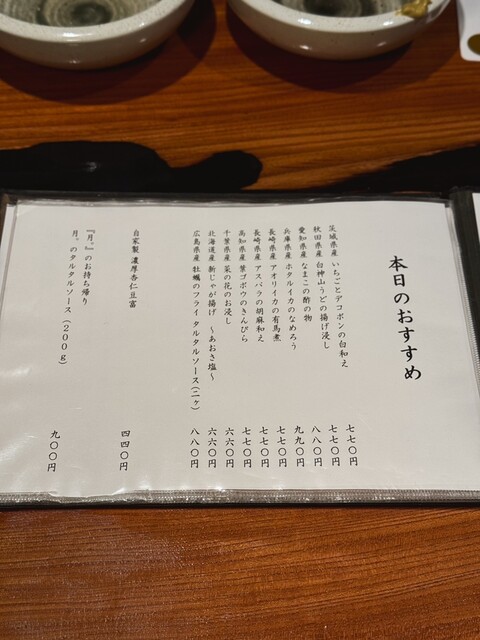 本日のおすすめ
茨城県産 いちごとデコポンの白和え 七七〇円
秋田県産 白神山うどの揚げ浸し 七七〇円
愛知県産 なまこの酢の物 八八〇円
兵庫県産 ホタルイカのなめろう 九九〇円
長崎県産 アオリイカの有馬煮 七七〇円
長崎県産 アスパラの胡麻和え 七七〇円
高知県産 葉ゴボウのきんぴら 七七〇円
千葉県産 菜の花のお浸し 六六〇円
北海道産 新じゃが揚げ 〜あおさ塩〜 六六〇円
広島県産 牡蠣のフライ タルタルソース(二ヶ) 八八〇円
自家製 濃厚杏仁豆富 四四〇円
『月。』のお持ち帰り
月。のタルタルソース(200g) 九〇〇円